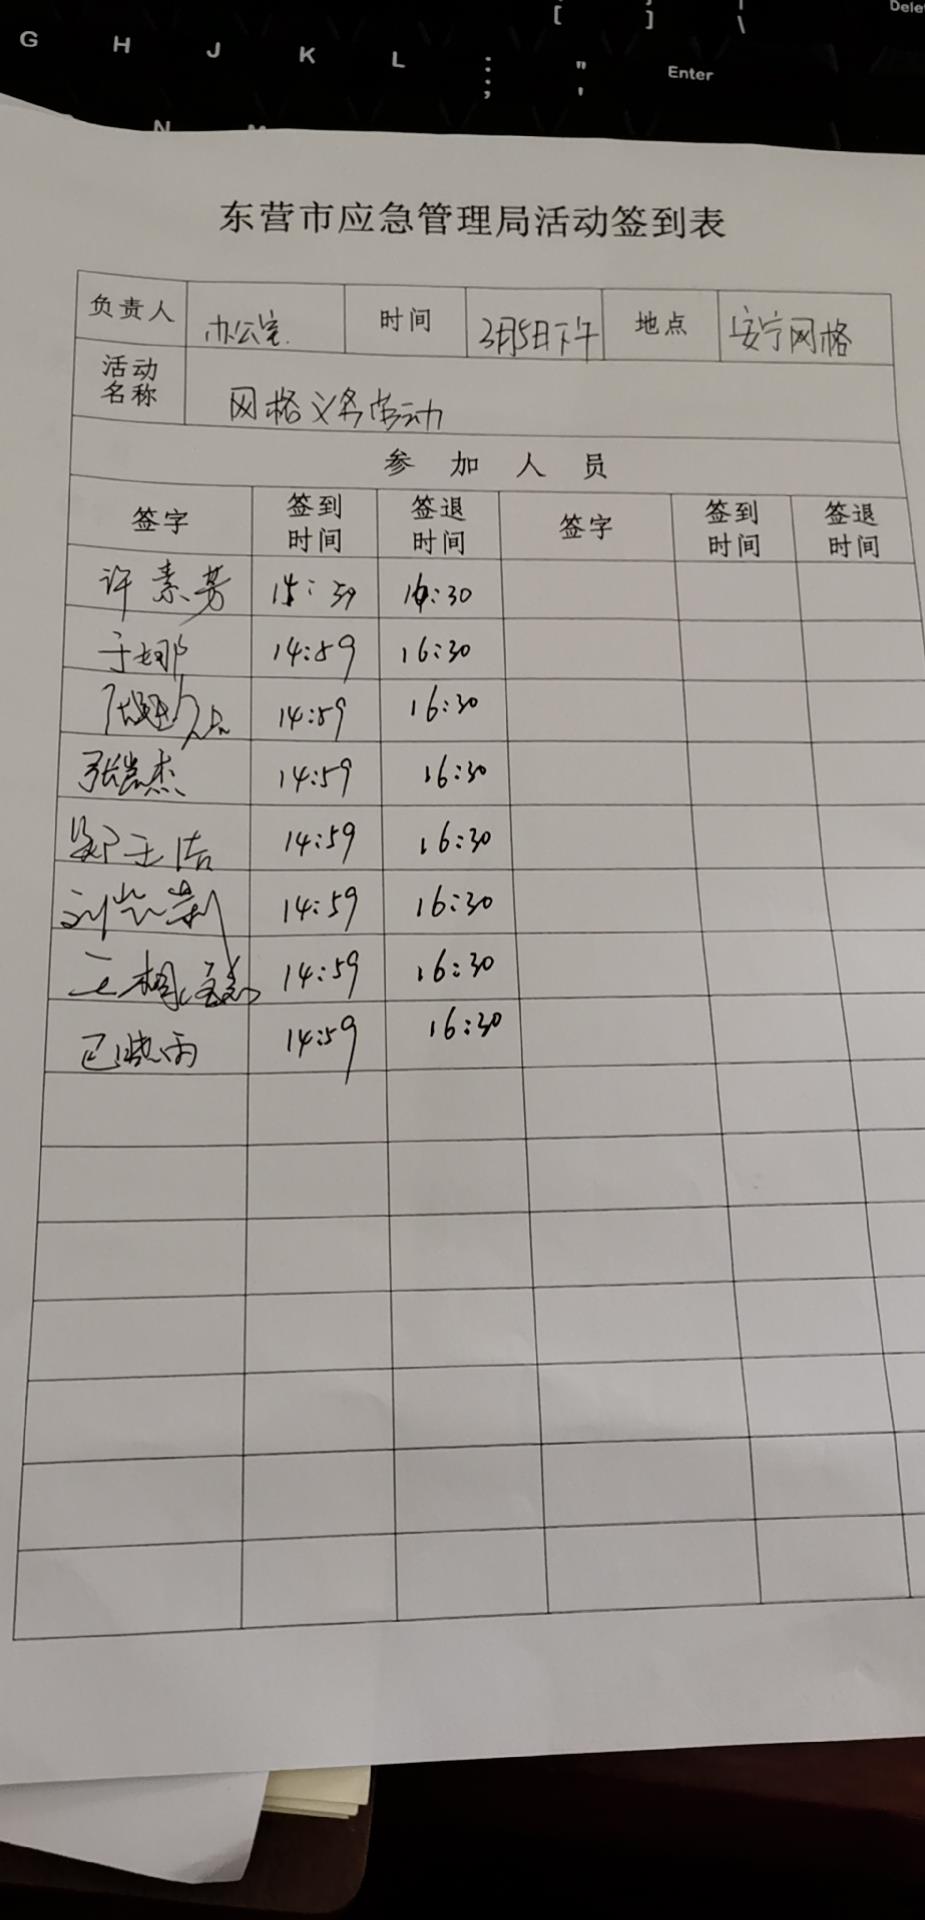 G H J K L ; : ' " Enter
[ ] \ Dele
N M
东营市应急管理局活动签到表
负责人 办公室 时间 3月5日下午 地点 安宁网格
活动名称 网格义务劳动
参加人员
签字 签到时间 签退时间 签字 签到时间 签退时间
许素芳 14:59 16:30
于娜 14:59 16:30
14:59 16:30
张凯杰 14:59 16:30
14:59 16:30
14:59 16:30
14:59 16:30
14:59 16:30